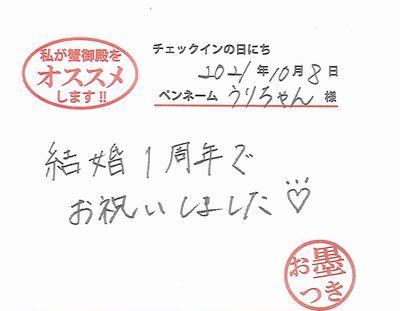 私が蟹御殿を
オススメ
します!!
チェックインの日にち
2021年10月8日
ペンネーム うりちゃん 様
結婚1周年で
お祝いしました♡
お墨
つき